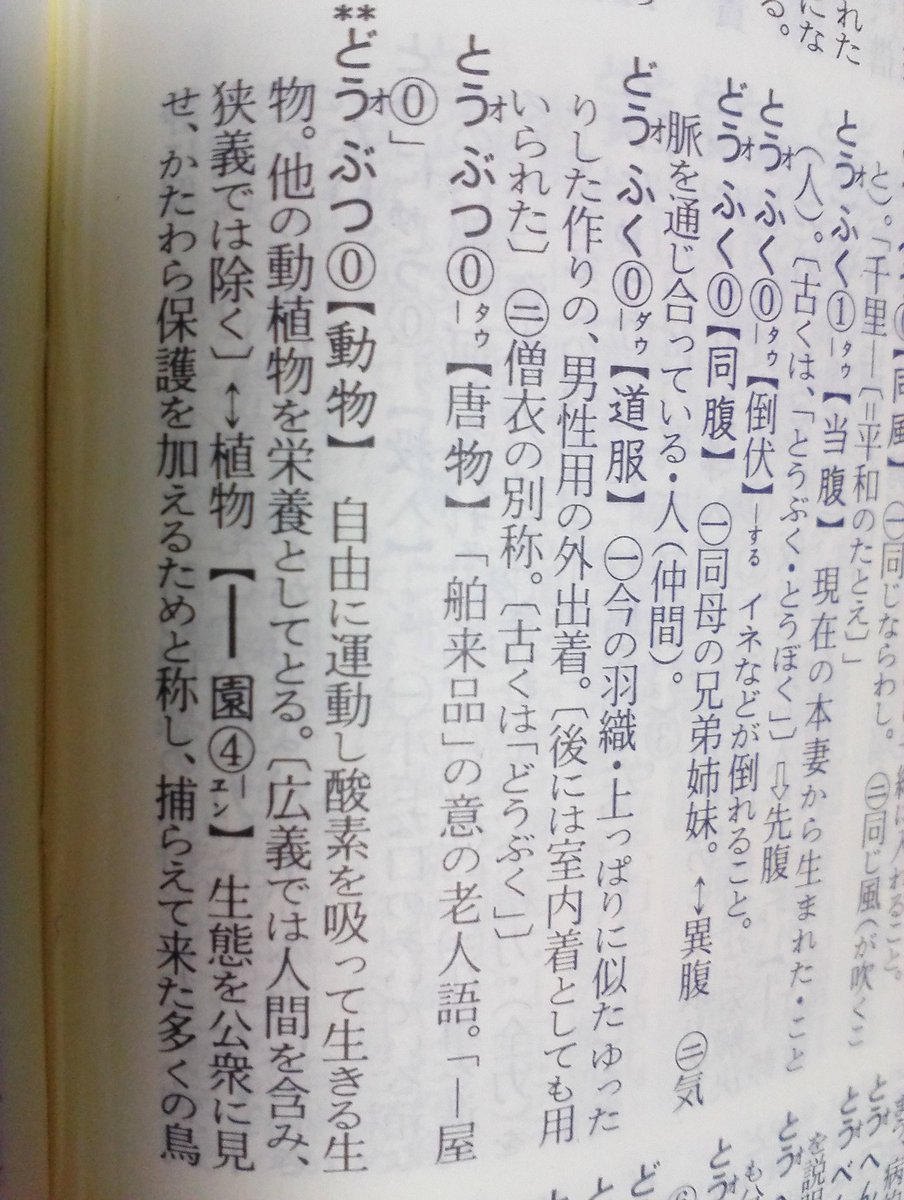 れた
にな
る。
【同風】 ㊀同じならわし。 ㊁同じ風(が吹くこ
と)。「千里―〔=平和のたとえ〕」
とうオふく①―タウ【当腹】 現在の本妻から生まれた・こと
(人)。〔古くは、「とうぶく・とうぼく」〕⇨先腹
とうオふく⓪―タウ【倒伏】―する イネなどが倒れること。
どうオふく⓪【同腹】 ㊀同母の兄弟姉妹。↔異腹 ㊁気
脈を通じ合っている・人(仲間)。
どうオふく⓪―ダウ【道服】 ㊀今の羽織・上っぱりに似たゆった
りした作りの、男性用の外出着。〔後には室内着としても用
いられた〕 ㊁僧衣の別称。〔古くは「どうぶく」〕
とうオぶつ⓪―タウ【唐物】 「舶来品」の意の老人語。「―屋
⓪」
**どうオぶつ⓪【動物】 自由に運動し酸素を吸って生きる生
物。他の動植物を栄養としてとる。〔広義では人間を含み、
狭義では除く〕↔植物 【―園④―エン】 生態を公衆に見
せ、かたわら保護を加えるためと称し、捕らえて来た多くの鳥